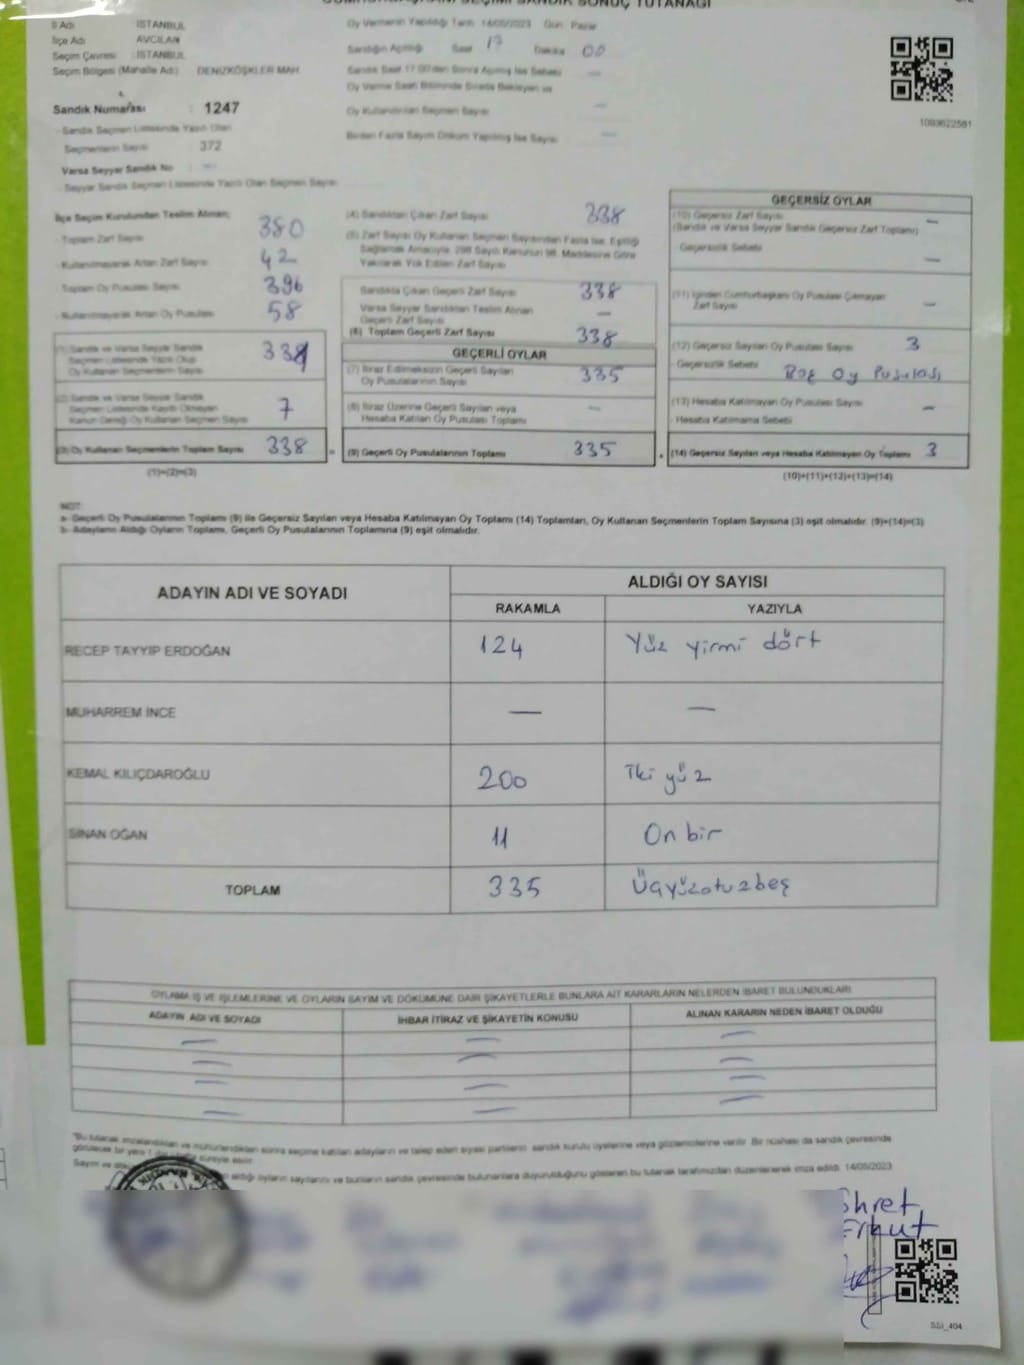 CUMHURBAŞKANI SEÇİMİ SANDIK SONUÇ TUTANAĞI
İl Adı : İSTANBUL
İlçe Adı AVCILAR
Seçim Çevresi : İSTANBUL
Seçim Bölgesi (Mahalle Adı) DENİZKÖŞKLER MAH.
Sandık Numarası : 1247
- Sandık Seçmen Listesinde Yazılı Olan
Seçmenlerin Sayısı : 372
Varsa Seyyar Sandık No : —
- Seyyar Sandık Seçmen Listesinde Yazılı Olan Seçmen Sayısı
Oy Vermenin Yapıldığı Tarih 14/05/2023 Gün Pazar
Sandığın Açıldığı Saat 17 Dakika 00
Sandık Saat 17:00'den Sonra Açılmış İse Sebebi —
Oy Verme Saati Bitiminde Sırada Bekleyen ve
Oy Kullandırılan Seçmen Sayısı —
Birden Fazla Sayım Döküm Yapılmış İse Sayısı —
1093622581
İlçe Seçim Kurulundan Teslim Alınan;
- Toplam Zarf Sayısı 380
- Kullanılmayarak Artan Zarf Sayısı 42
Toplam Oy Pusulası Sayısı 396
- Kullanılmayarak Artan Oy Pusulası 58
(1) Sandık ve Varsa Seyyar Sandık
Seçmen Listesinde Yazılı Olup
Oy Kullanan Seçmenlerin Sayısı
(2) Sandık ve Varsa Seyyar Sandık
Seçmen Listesinde Kayıtlı Olmayan
Kanun Gereği Oy Kullanan Seçmen Sayısı 7
(3) Oy Kullanan Seçmenlerin Toplam Sayısı 338
(1)+(2)=(3)
(4) Sandıktan Çıkan Zarf Sayısı 338
(5) Zarf Sayısı Oy Kullanan Seçmen Sayısından Fazla İse, Eşitliği
Sağlamak Amacıyla, 298 Sayılı Kanunun 98. Maddesine Göre
Yakılarak Yok Edilen Zarf Sayısı
Sandıkta Çıkan Geçerli Zarf Sayısı 338
Varsa Seyyar Sandıktan Teslim Alınan
Geçerli Zarf Sayısı —
(6) Toplam Geçerli Zarf Sayısı 338
GEÇERLİ OYLAR
(7) İtiraz Edilmeksizin Geçerli Sayılan
Oy Pusulalarının Sayısı 335
(8) İtiraz Üzerine Geçerli Sayılan veya
Hesaba Katılan Oy Pusulası Toplamı —
(9) Geçerli Oy Pusulalarının Toplamı 335
GEÇERSİZ OYLAR
(10) Geçersiz Zarf Sayısı —
(Sandık ve Varsa Seyyar Sandık Geçersiz Zarf Toplamı)
- Geçersizlik Sebebi —
(11) İçinden Cumhurbaşkanı Oy Pusulası Çıkmayan
Zarf Sayısı —
(12) Geçersiz Sayılan Oy Pusulası Sayısı 3
- Geçersizlik Sebebi Boş Oy Pusulası
(13) Hesaba Katılmayan Oy Pusulası Sayısı —
- Hesaba Katılmama Sebebi
(14) Geçersiz Sayılan veya Hesaba Katılmayan Oy Toplamı 3
(10)+(11)+(12)+(13)=(14)
NOT:
a- Geçerli Oy Pusulalarının Toplamı (9) ile Geçersiz Sayılan veya Hesaba Katılmayan Oy Toplamı (14) Toplamları, Oy Kullanan Seçmenlerin Toplam Sayısına (3) eşit olmalıdır. (9)+(14)=(3)
b- Adayların Aldığı Oyların Toplamı, Geçerli Oy Pusulalarının Toplamına (9) eşit olmalıdır.
ADAYIN ADI VE SOYADI ALDIĞI OY SAYISI
RAKAMLA YAZIYLA
RECEP TAYYİP ERDOĞAN 124 Yüz yirmi dört
MUHARREM İNCE — —
KEMAL KILIÇDAROĞLU 200 İki yüz
SİNAN OĞAN 11 On bir
TOPLAM 335 Üçyüzotuzbeş
OYLAMA İŞ VE İŞLEMLERİNE VE OYLARIN SAYIM VE DÖKÜMÜNE DAİR ŞİKAYETLERLE BUNLARA AİT KARARLARIN NELERDEN İBARET BULUNDUKLARI
ADAYIN ADI VE SOYADI İHBAR İTİRAZ VE ŞİKAYETİN KONUSU ALINAN KARARIN NEDEN İBARET OLDUĞU
— — —
— — —
— — —
— — —
"Bu tutanak imzalandıktan ve mühürlendikten sonra seçime katılan adayların ve talep eden siyasi partilerin sandık kurulu üyelerine veya gözlemcilerine verilir. Bir nüshası da sandık çevresinde
görülecek bir yere 1 süreyle asılır.
Sayım ve aldığı oyların sayılarını ve bunların sandık çevresinde bulunanlara duyurulduğunu gösteren bu tutanak tarafımızdan düzenlenerek imza edildi. 14/05/2023
SSI_404